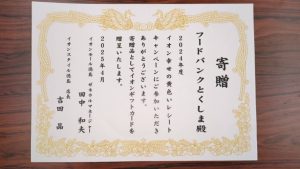 寄贈
フードバンクとくしま殿
2024年度
イオン幸せの黄色いレシート
キャンペーンにご参加いただき
ありがとうございます。
寄贈品としてイオンギフトカードを
贈呈いたします。
2025年4月
イオンモール徳島 ゼネラルマネージャー
田中 和夫
イオンスタイル徳島 店長
吉田 晶